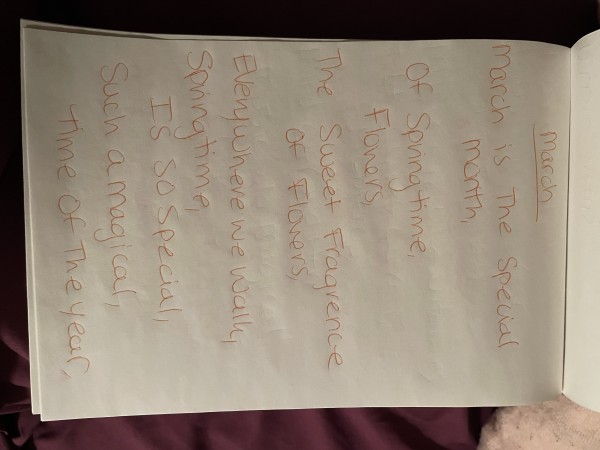 March
March is The Special
month,
Of Spring time,
Flowers,
The Sweet Fragrence
OF Flowers
Everywhere we walk,
Springtime,
IS So Special,
Such a magical,
time OF The year,